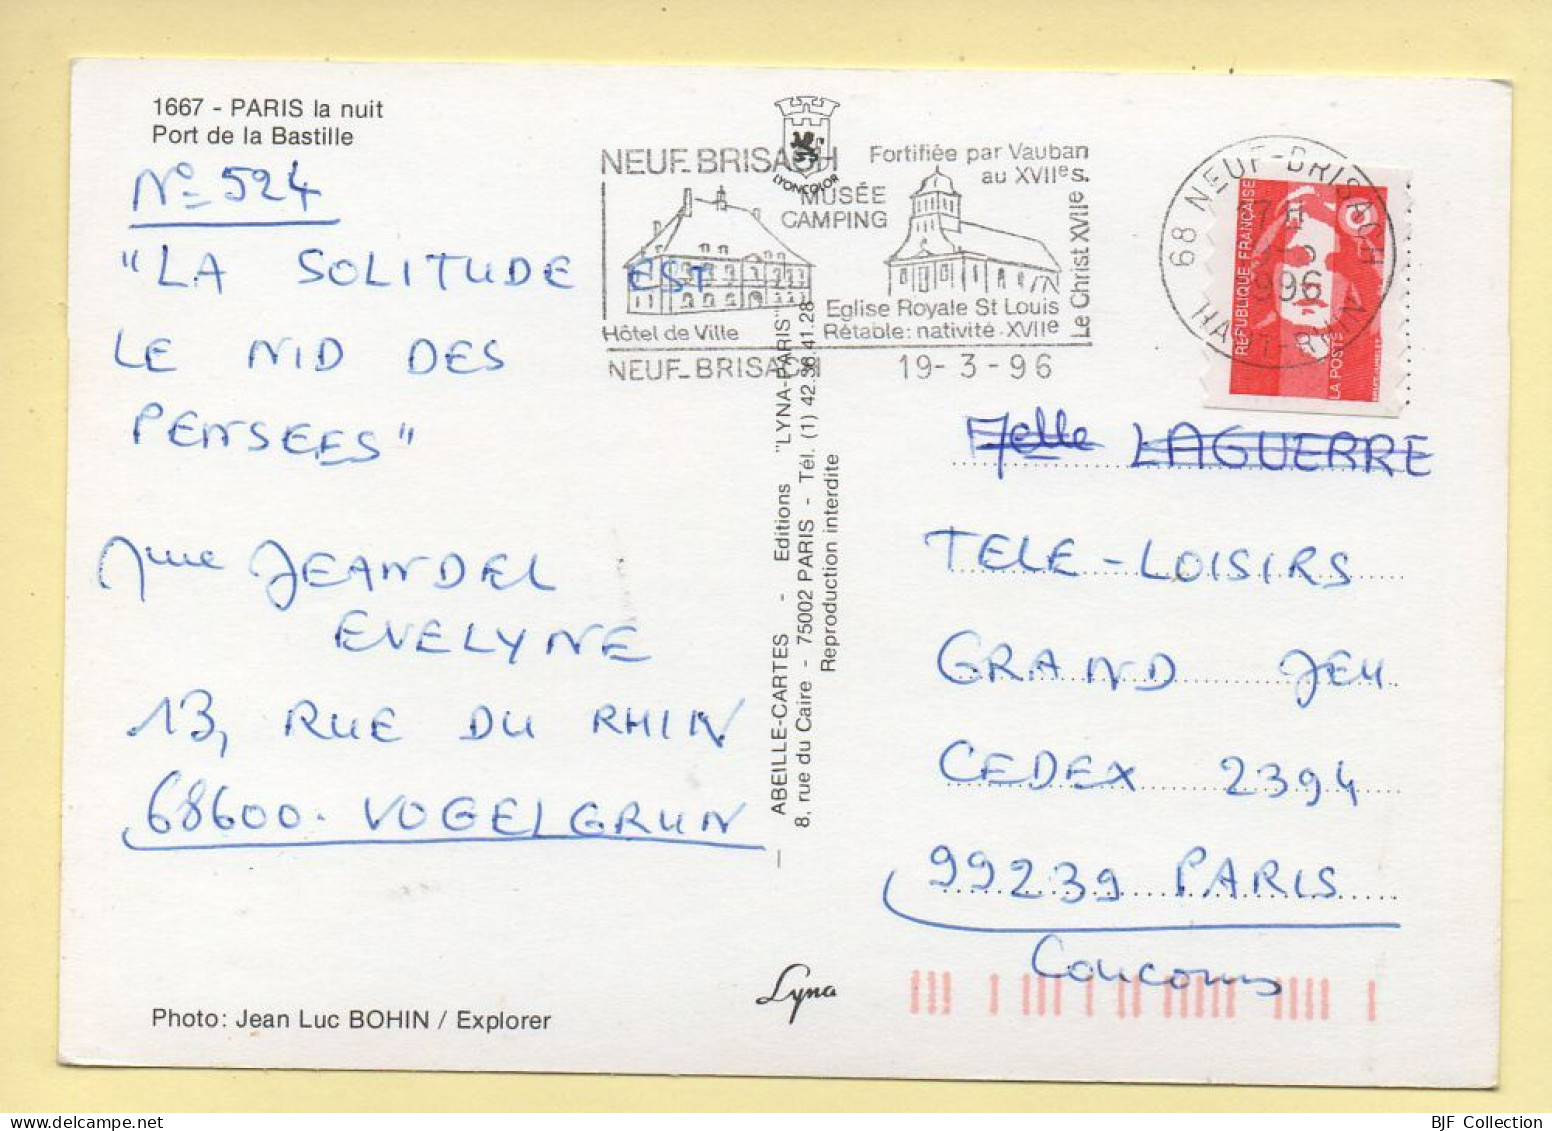 1667 - PARIS la nuit
Port de la Bastille
N° 524
"LA SOLITUDE EST
LE NID DES
PENSEES"
Mme JEANDEL
EVELYNE
13, RUE DU RHIN
68600. VOGELGRUN
Photo: Jean Luc BOHIN / Explorer
NEUF-BRISACH
LYONCOLOR
MUSÉE
CAMPING
Fortifiée par Vauban
au XVIIe s.
Le Christ XVIIe
Hôtel de Ville
Eglise Royale St Louis
Rétable: nativité - XVIIe
NEUF-BRISACH 19-3-96
ABEILLE-CARTES - Editions "LYNA-PARIS"
8, rue du Caire - 75002 PARIS - Tél. (1) 42.36.41.28
Reproduction interdite
Lyna
68 NEUF-BRISACH
996
HAUT-RHIN
REPUBLIQUE FRANÇAISE
LA POSTE
Melle LAGUERRE
TELE-LOISIRS
GRAND JEU
CEDEX 2394
99239 PARIS
Concours
BJF Collection